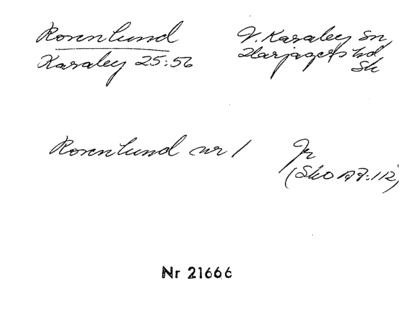 Rosenlund
V. Karaby sn,
Harjagers hd
Sk
Karaby 25:56
Rosenlund nr 1
Jr
(Sko A7:112)
Nr 21666